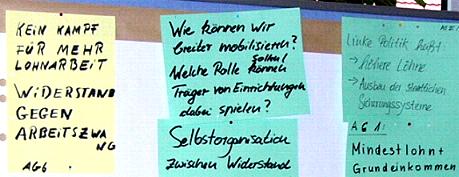 KEIN KAMPF
FÜR MEHR
LOHNARBEIT
WIDERSTAND
GEGEN
ARBEITSZWA
NG
AG6
Wie können wir
breiter mobilisieren?
Welche Rolle können
sollen/
Träger von Einrichtungen
dabei spielen?
Selbstorganisation
zwischen Widerstand
Linke Politik heißt:
→ höhere Löhne
→ Ausbau der staatlichen
Sicherungssysteme
AG 1:
Mindestlohn +
Grundeinkommen